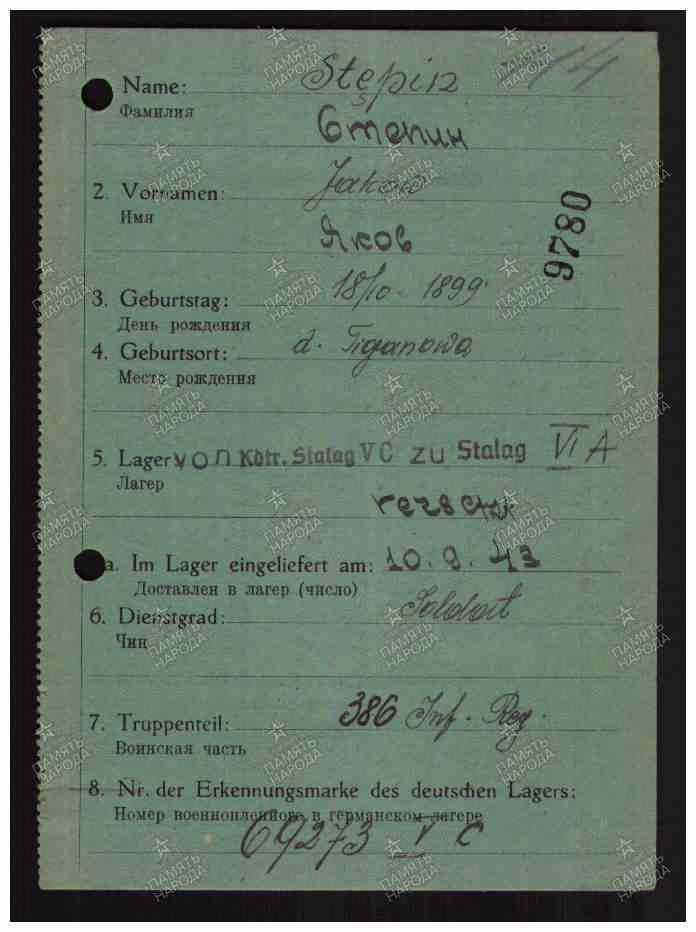 Name: Stepin
Фамилия
Степин
2. Vornamen: Jakow
Имя
Яков
9780
3. Geburtstag: 18/10. 1899
День рождения
4. Geburtsort: d. Tiganowa
Место рождения
5. Lager von Kdtr. Stalag V C zu Stalag VI A
Лагер
versetzt
a. Im Lager eingeliefert am: 10. 9. 43
Доставлен в лагер (число)
6. Dienstgrad: Soldat
Чин
7. Truppenteil: 386 Inf. Reg.
Воинская часть
8. Nr. der Erkennungsmarke des deutschen Lagers:
Номер военнопленного в германском лагере
69273 V C
ПАМЯТЬ НАРОДА